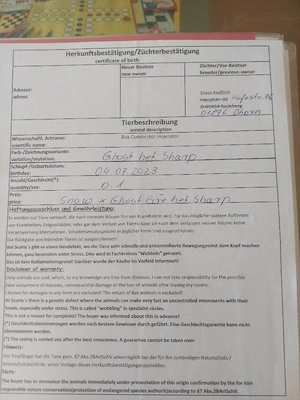 Herkunftsbestätigung/Züchterbestätigung
certificate of birth
Neuer Besitzer
new owner
Züchter/Vor-Besitzer
breeder/previous owner
Adresse:
adress:
Silvio
01896
Tierbeschreibung
animal description
Wissenschaft. Artname:
scientific name:
Boa Constrictor imperator
Farb-/Zeichnungsvariante:
variation/mutation:
Ghost het Sharp
Schlupf-/Geburtsdatum:
birthday:
04.07.2023
Anzahl/Geschlecht(*):
quantity/sex:
0.1
Preis:
price:
Snow x Ghost het Sharp
Haftungsausschluss und Gewährleistung:
Es werden nur Tiere verkauft, die nach meinem Wissen frei von Krankheiten sind. Für das mögliche spätere Auftreten
von Krankheiten, Folgeschäden, oder gar dem Verlust von Tieren kann ich nach dem Verlassen meiner Räume keine
Verantwortung übernehmen. Schadensersatzansprüche in jeglicher Form sind ausgeschlossen!
Die Rückgabe von lebenden Tieren ist ausgeschlossen!
Bei Scaria's gibt es einen Gendefekt, wo die Tiere sehr schnelle und unkontrollierte Bewegungen mit dem Kopf machen
können, ganz besonders unter Stress. Dies wird in Fachkreisen "Wobbeln" genannt.
Das ist kein Reklamationsgrund! Darüber wurde der Käufer im Vorfeld informiert!
Disclaimer of warranty:
Only animals are sold, which, to my knowledge are free from diseases. I can not take responsibility for the possible
later occurrence of diseases, consequential damage or the loss of animals after leaving my rooms.
Claims for damages in any form are excluded! The return of live animals is excluded!
At Scaria's there is a genetic defect where the animals can make very fast an uncontrolled movements with their
heads, especially under stress. This is called "wobbling" in specialist circles.
This is not a reason for complaint! The buyer was informed about this in advance!
(*) Geschlechtsbestimmungen werden nach bestem Gewissen durchgeführt. Eine Geschlechtsgarantie kann nicht
übernommen werden.
(*) The sexing is carried out after the best conscience. A guarantee cannot be taken over.
Hinweis:
Der Empfänger hat die Tiere gem. § 7 Abs.2BArtSchV unverzüglich bei der für ihn zuständigen Naturschutz-/
Artenschutzbehörde, unter Vorlage dieser Herkunftsbestätigung anzumelden.
Note:
The buyer has to announce the animals immediately under presentation of this origin confirmation by the for him
responsible nature conservation/protection of endangered species authority(according to §7 Abs.2BArtSchV.